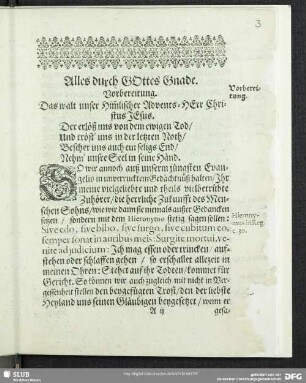 3
Alles durch GOttes Gnade.
Vorbereitung.
Vorberei-
tung.
Das walt unser Himlischer Advents-HErr Chri-
stus JEsus.
Der erlöß uns von dem ewigen Tod/
Und tröst uns in der letzten Noth/
Bescher uns auch ein seligs End/
Nehm' unsre Seel in seine Händ.
SO wir annoch auß unserm jüngsten Evan-
gelio in unverrucktem Gedächtnüß halten/ Ihr
meine vielgeliebte und theils vielbetrübte
Zuhörer/ die herrliche Zukunfft des Men-
schen Sohns/ wie wir dann sie niemals ausser Gedancken
setzen/ sondern mit dem Hieronymo stetig sagen sollen:
Hierony-
Sive edo, sive bibo, sive surgo, sive cubitum eo,
semper sonat in auribus meis: Surgite mortui, ve-
c. 30.
nite ad judicium: Ich mag essen oder trincken/ auf-
stehen oder schlaffen gehen/ so erschallet allezeit in
meinen Ohren: Stehet auf ihr Todten/ kommet für
Gericht. So können wir auch zugleich mit nicht in Ver-
gessenheit stellen den beygefügten Trost/ den der liebste
Heyland uns seinen Gläubigen beygesetzet/ wenn er
A ij
gesa-
SLUB
DFG